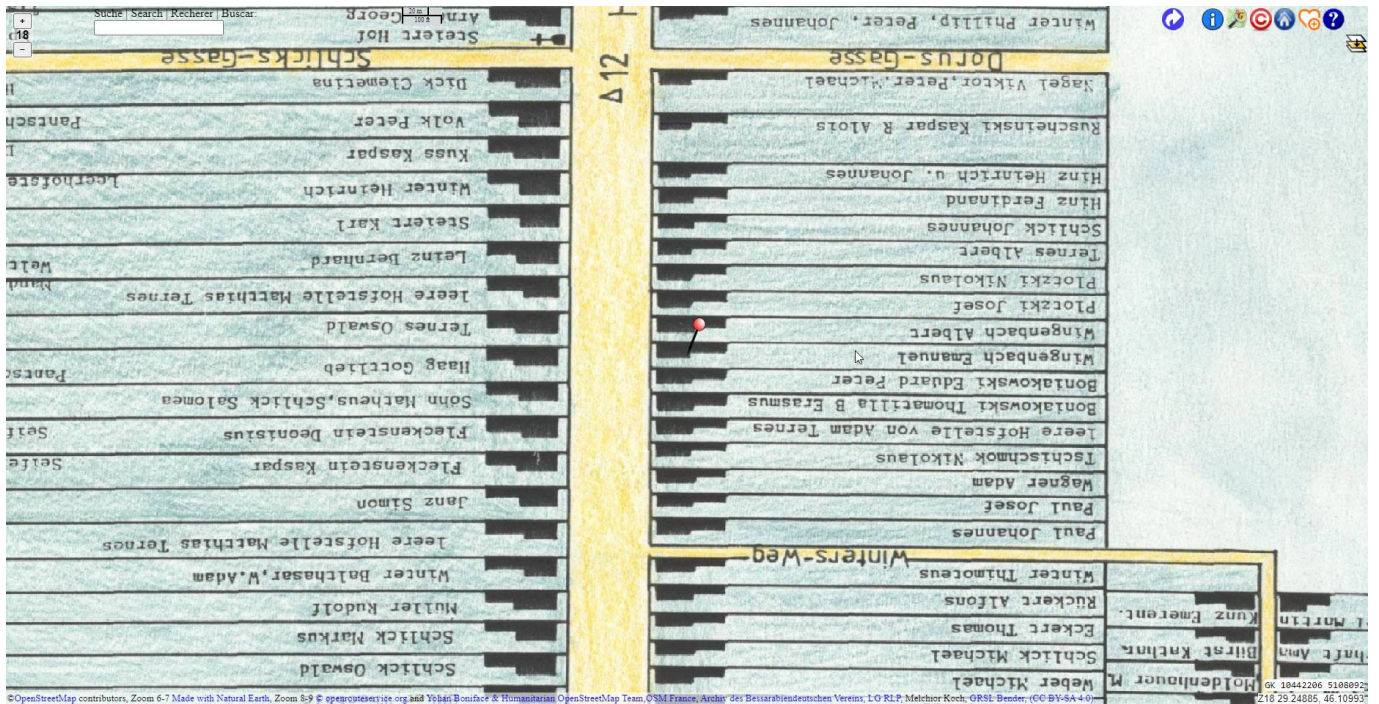 Suche | Search | Recherer | Buscar:
+
18
−
20 m
100 ft
Arnt Georg
Steiert Hof
Schlicks-Gasse
Dick Clemetina
Volk Peter
Kuss Kaspar
Winter Heinrich
Steiert Karl
Leinz Bernhard
leere Hofstelle Matthias Ternes
Ternes Oswald
Haag Gottlieb
Sohn Matheus,Schlick Salomea
Fleckenstein Deonisius
Fleckenstein Kaspar
Janz Simon
leere Hofstelle Matthias Ternes
Winter Balthasar,W.Adam
Müller Rudolf
Schlick Markus
Schlick Oswald
Δ 12
Winter Phillip, Peter, Johannes
Dorus-Gasse
Nagel Viktor,Peter,Michael
Ruscheinski Kaspar R Alois
Hinz Heinrich u. Johannes
Hinz Ferdinand
Schlick Johannes
Ternes Albert
Plotzki Nikolaus
Plotzki Josef
Wingenbach Albert
Wingenbach Emanuel
Boniakowski Eduard Peter
Boniakowski Thomatilla B Erasmus
leere Hofstelle von Adam Ternes
Tschischmok Nikolaus
Wagner Adam
Paul Josef
Paul Johannes
Winters-Weg
Winter Thimoteus
Rückert Alfons
Eckert Thomas
Schlick Michael
Weber Michael
Kunz Emerent.
Bürst Kathar.
Moldenhauer M
Martin
GK 10442206 5108092
©OpenStreetMap contributors, Zoom 6-7 Made with Natural Earth, Zoom 8-9 © openrouteservice.org and Yohan Boniface & Humanitarian OpenStreetMap Team,OSM France, Archiv des Bessarabiendeutschen Vereins, LG RLP, Melchior Koch, GRSL Bender, (CC BY-SA 4.0)
Z18 29.24885, 46.10993